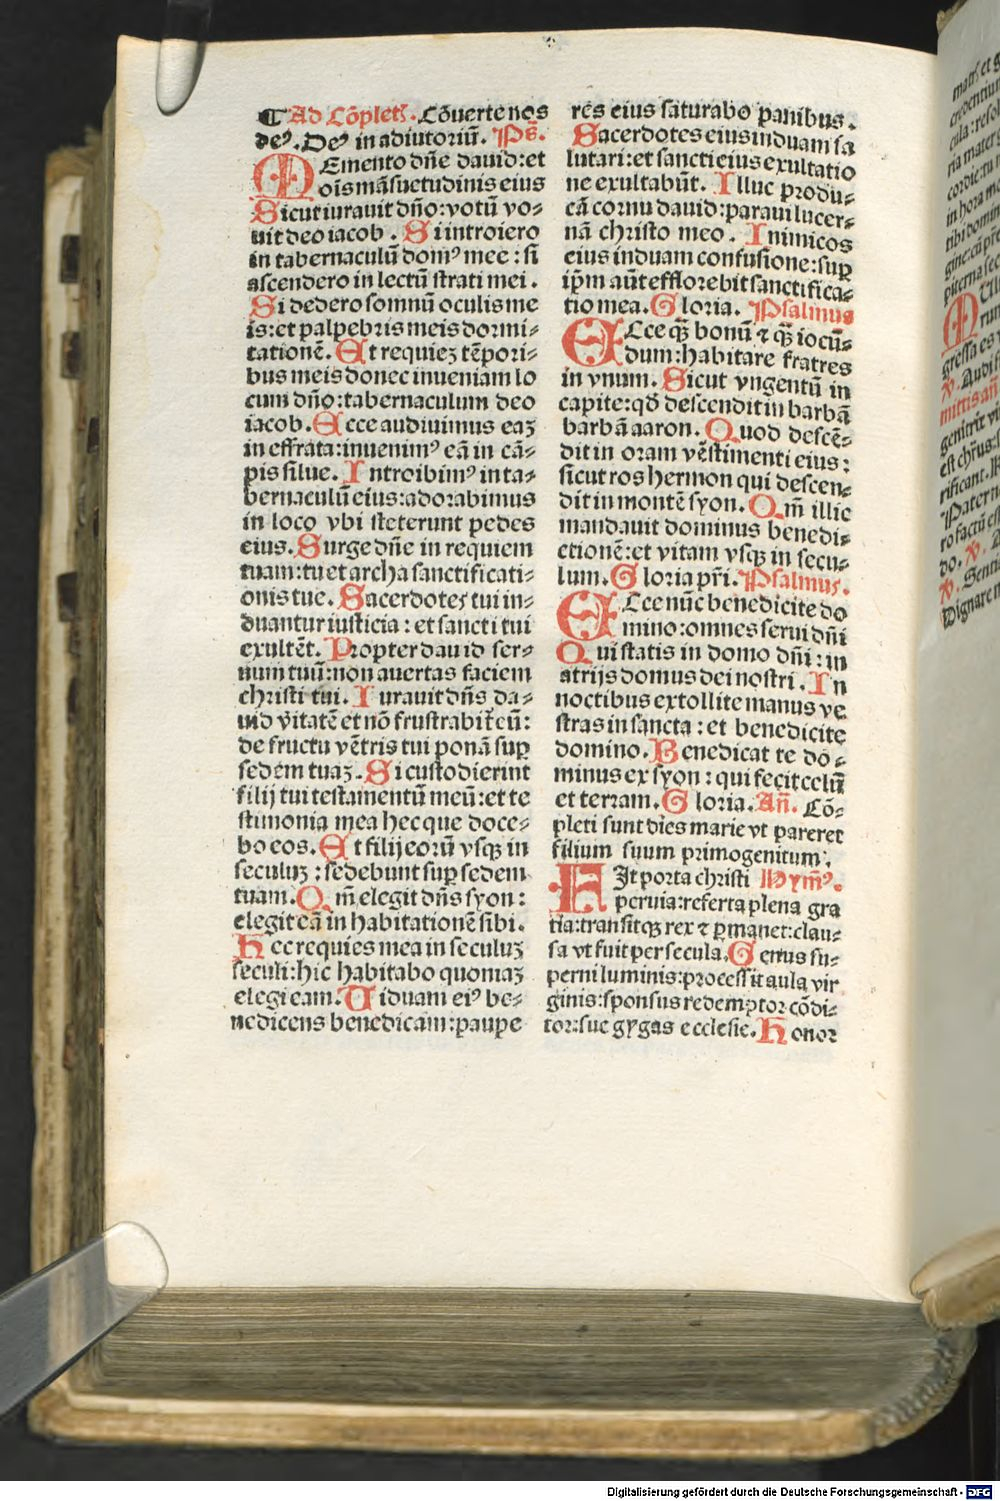 ¶ Ad Cōpletꝭ. Cōuerte nos
deꝰ. Deꝰ in adiutoriū. Ps̄.
MEmento dn̄e dauid: et
oīs māsuetudinis eius
Sicut iurauit dn̄o: votū vo⸗
uit deo iacob. Si introiero
in tabernaculū domꝰ mee: si
ascendero in lectū strati mei.
Si dedero somnū oculis me
is: et palpebris meis dormi⸗
tationē. Et requieʒ tēpori⸗
bus meis donec inueniam lo
cum dn̄o: tabernaculum deo
iacob. Ecce audiuimus eaʒ
in effrata: inuenimꝰ eā in cā⸗
pis silue. Introibimꝰ in ta⸗
bernaculū eius: adorabimus
in loco vbi steterunt pedes
eius. Surge dn̄e in requiem
tuam: tu et archa sanctificati⸗
onis tue. Sacerdotes tui in⸗
duantur iusticia: et sancti tui
exultēt. Propter dauid ser⸗
uum tuū: non auertas faciem
christi tui. Iurauit dn̄s da⸗
uid v̄itatē et nō frustrabit̄ eū:
de fructu vētris tui ponā suꝑ
sedem tuaʒ. Si custodierint
filij tui testamentū meū: et te
stimonia mea hec que doce⸗
bo eos. Et filij eoꝝ vsqꝫ in
seculuʒ: sedebunt suꝑ sedem
tuam. Qm̄ elegit dn̄s syon:
elegit eā in habitationē sibi.
Hec requies mea in seculuʒ
seculi: hic habitabo quoniaʒ
elegi eam. Uiduam eiꝰ be⸗
nedicens benedicam: paupe
res eius saturabo panibus.
Sacerdotes eius induam sa
lutari: et sancti eius exultatio
ne exultabūt. Illuc produ⸗
cā cornu dauid: paraui lucer⸗
nā christo meo. Inimicos
eius induam confusione: suꝑ
ip̄m aūt efflorebit sanctifica⸗
tio mea. Gloria. Psalmus
ECce qꝫ bonū ⁊ qꝫ iocū⸗
dum: habitare fratres
in vnum. Sicut vngentū in
capite: qd̄ descendit in barbā
barbā aaron. Quod descē⸗
dit in oram vēstimenti eius:
sicut ros hermon qui descen⸗
dit in montē syon. Qm̄ illic
mandauit dominus benedi⸗
ctionē: et vitam vsqꝫ in secu⸗
lum. Gloria pr̄i. Psalmus.
ECce nūc benedicite do
mino: omnes serui dn̄i
Qui statis in domo dn̄i: in
atrijs domus dei nostri. In
noctibus extollite manus ve
stras in sancta: et benedicite
domino. Benedicat te do⸗
minus ex syon: qui fecit celū
et terram. Gloria. An̄. Cō⸗
pleti sunt dies marie vt pareret
filium suum primogenitum.
FIt porta christi Hymꝰ.
peruia: referta plena gra
tia: transitqꝫ rex ⁊ ꝑmanet: clau⸗
sa vt fuit per secula. Genus su⸗
perni luminis: processit aula vir
ginis: sponsus redemptor cōdi⸗
tor: sue gygas ecclesie. Honor
Digitalisierung gefördert durch die Deutsche Forschungsgemeinschaft - DFG